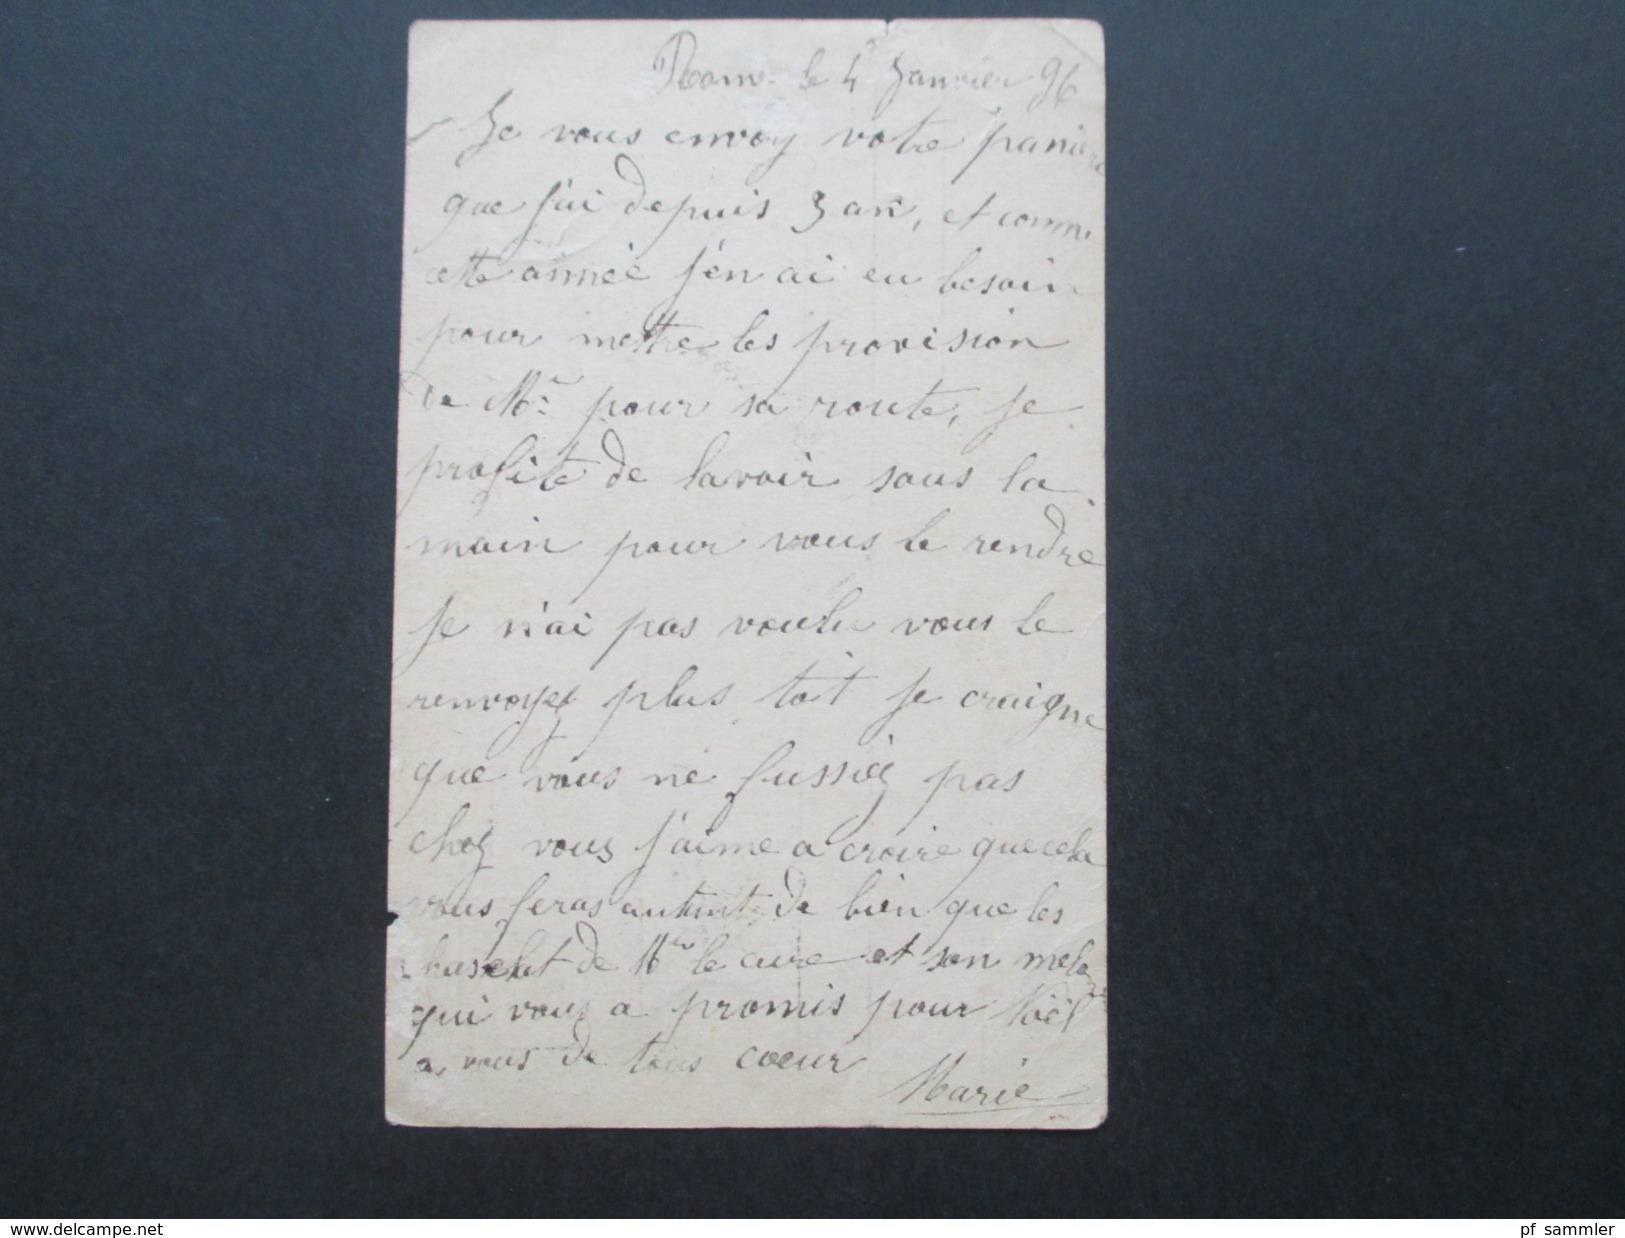 le 4 Janvier 96
Je vous envoy votre panier
que j'ai depuis 3 an, et comme
cette année j'en ai eu besoin
pour mettre les provision
de Mr pour sa route, je
profite de lavoir sous la
main pour vous le rendre
je n'ai pas voulu vous le
renvoyez plus tôt je craigne
que vous ne fussiez pas
chez vous j'aime a croire que cela
vous feras autant de bien que les
de Mr le cure et son
qui vous a promis pour Noël
a vous de tous coeur
Marie
www.delcampe.net
pf_sammler